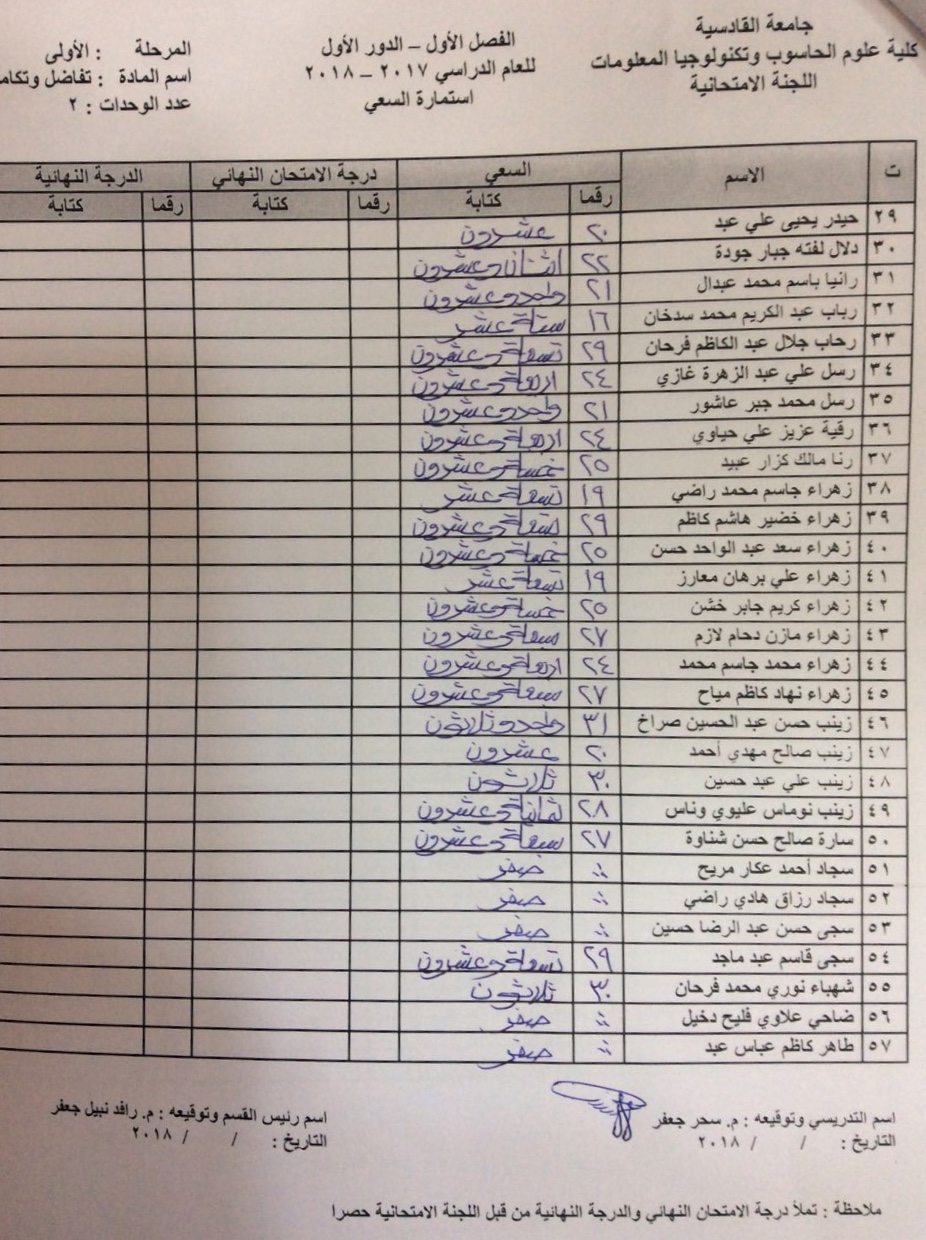 جامعة القادسية
كلية علوم الحاسوب وتكنولوجيا المعلومات
اللجنة الامتحانية
الفصل الأول – الدور الأول
للعام الدراسي ٢٠١٧ – ٢٠١٨
استمارة السعي
المرحلة : الأولى
اسم المادة : تفاضل وتكام
عدد الوحدات : ٢
ت الاسم السعي درجة الامتحان النهائي الدرجة النهائية
رقما كتابة رقما كتابة رقما كتابة
٢٩ حيدر يحيى علي عبد ٢٠ عشرون
٣٠ دلال لفته جبار جودة ٢٢ اثنان وعشرون
٣١ رانيا باسم محمد عبدال ٢١ واحد وعشرون
٣٢ رباب عبد الكريم محمد سدخان ١٦ ستة عشر
٣٣ رحاب جلال عبد الكاظم فرحان ٢٩ تسعة وعشرون
٣٤ رسل علي عبد الزهرة غازي ٢٤ اربعة وعشرون
٣٥ رسل محمد جبر عاشور ٢١ واحد وعشرون
٣٦ رقية عزيز علي حياوي ٢٤ اربعة وعشرون
٣٧ رنا مالك كزار عبيد ٢٥ خمسة وعشرون
٣٨ زهراء جاسم محمد راضي ١٩ تسعة عشر
٣٩ زهراء خضير هاشم كاظم ٢٩ تسعة وعشرون
٤٠ زهراء سعد عبد الواحد حسن ٢٥ خمسة وعشرون
٤١ زهراء علي برهان معارز ١٩ تسعة عشر
٤٢ زهراء كريم جابر خشن ٢٥ خمسة وعشرون
٤٣ زهراء مازن دحام لازم ٢٧ سبعة وعشرون
٤٤ زهراء محمد جاسم محمد ٢٤ اربعة وعشرون
٤٥ زهراء نهاد كاظم مياح ٢٧ سبعة وعشرون
٤٦ زينب حسن عبد الحسين صراخ ٣١ واحد وثلاثون
٤٧ زينب صالح مهدي أحمد ٢٠ عشرون
٤٨ زينب علي عبد حسين ٣٠ ثلاثون
٤٩ زينب نوماس عليوي وناس ٢٨ ثمانية وعشرون
٥٠ سارة صالح حسن شناوة ٢٧ سبعة وعشرون
٥١ سجاد أحمد عكار مريح صفر
٥٢ سجاد رزاق هادي راضي صفر
٥٣ سجى حسن عبد الرضا حسين صفر
٥٤ سجى قاسم عبد ماجد ٢٩ تسعة وعشرون
٥٥ شهباء نوري محمد فرحان ٣٠ ثلاثون
٥٦ ضاحي علاوي فليح دخيل صفر
٥٧ طاهر كاظم عباس عبد صفر
اسم التدريسي وتوقيعه : م. سحر جعفر
التاريخ : / / ٢٠١٨
اسم رئيس القسم وتوقيعه : م. رافد نبيل جعفر
التاريخ : / / ٢٠١٨
ملاحظة : تملأ درجة الامتحان النهائي والدرجة النهائية من قبل اللجنة الامتحانية حصرا